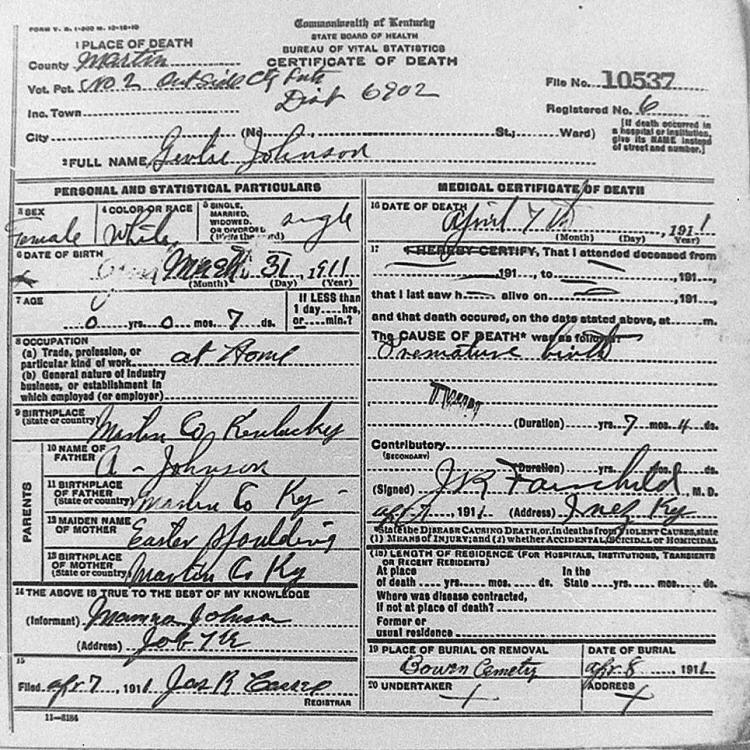 FORM V. S. 1-500 M. 12-16-10
Commonwealth of Kentucky
STATE BOARD OF HEALTH
BUREAU OF VITAL STATISTICS
CERTIFICATE OF DEATH
1 PLACE OF DEATH
County Martin
Vot. Pct. No 2 Out Side Cty
Dist 6902
File No. 10537
Inc. Town
Registered No. 6
City (No. St.; Ward)
[If death occurred in a hospital or institution, give its NAME instead of street and number.]
2 FULL NAME Johnson
PERSONAL AND STATISTICAL PARTICULARS
3 SEX Female
4 COLOR OR RACE White
5 SINGLE, MARRIED, WIDOWED, OR DIVORCED (Write the word) single
6 DATE OF BIRTH March 31, 1911
(Month) (Day) (Year)
7 AGE 0 yrs. 0 mos. 7 ds.
If LESS than 1 day....hrs, or.....min.?
8 OCCUPATION
(a) Trade, profession, or particular kind of work at Home
(b) General nature of industry business, or establishment in which employed (or employer)
9 BIRTHPLACE (State or country) Martin Co Kentucky
PARENTS
10 NAME OF FATHER A - Johnson
11 BIRTHPLACE OF FATHER (State or country) Martin Co Ky -
12 MAIDEN NAME OF MOTHER Easter Spoulding
13 BIRTHPLACE OF MOTHER (State or country) Martin Co Ky
14 THE ABOVE IS TRUE TO THE BEST OF MY KNOWLEDGE
(Informant) Johnson
(Address) Job Ky
15
Filed apr 7, 1911 Jas R Cassel
REGISTRAR
11-5184
MEDICAL CERTIFICATE OF DEATH
16 DATE OF DEATH April 7th, 1911
(Month) (Day) (Year)
17 I HEREBY CERTIFY, That I attended deceased from
191 , to 191 ,
that I last saw h alive on 191 ,
and that death occured, on the date stated above, at m.
The CAUSE OF DEATH* was as follows:
Premature birth
(Duration) yrs. 7 mos. 4 ds.
Contributory (SECONDARY)
(Duration) yrs. mos. ds.
(Signed) J R Fairchild, M. D.
apr 7, 1911 (Address) Inez Ky
*State the DISEASE CAUSING DEATH, or, in deaths from VIOLENT CAUSES, state (1) MEANS OF INJURY; and (2) whether ACCIDENTAL, SUICIDAL or HOMICIDAL
(18) LENGTH OF RESIDENCE (FOR HOSPITALS, INSTITUTIONS, TRANSIENTS OR RECENT RESIDENTS)
At place of death yrs. mos. ds. In the State yrs. mos. ds.
Where was disease contracted, if not at place of death?
Former or usual residence
19 PLACE OF BURIAL OR REMOVAL Bowen Cemetry
DATE OF BURIAL apr. 8 1911
20 UNDERTAKER
ADDRESS